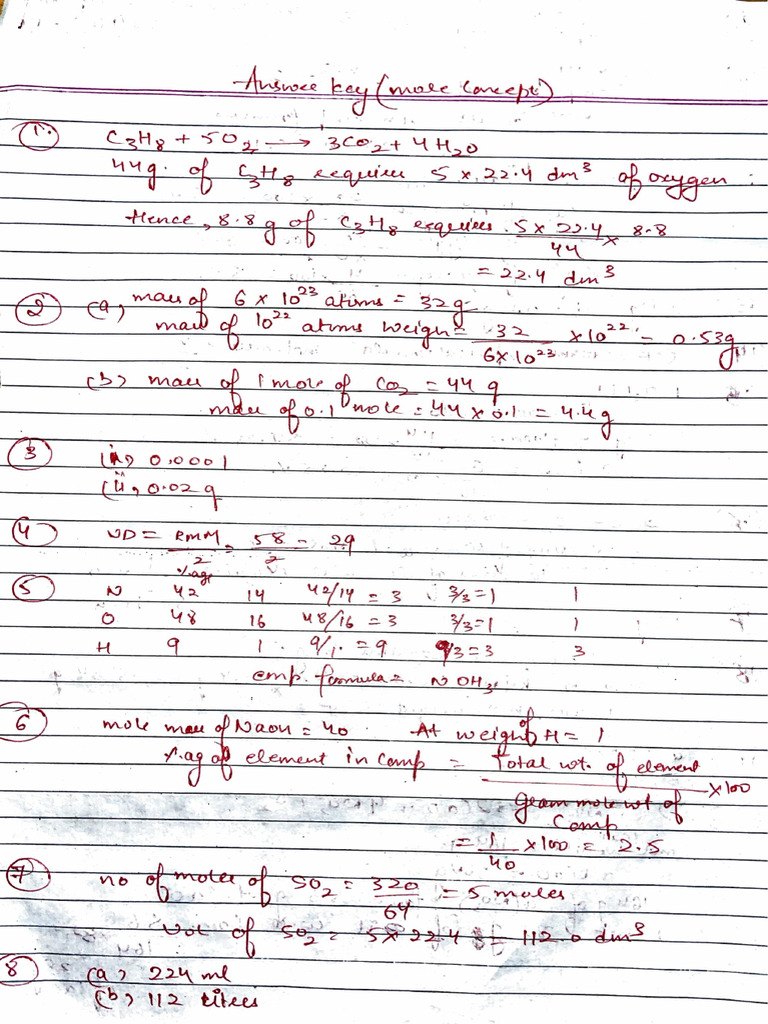 Answer key (mole concept)
① C3H8 + 5O2 → 3CO2 + 4H2O
44g. of C3H8 requires 5 x 22.4 dm³ of oxygen
Hence, 8.8 g of C3H8 requires 5 x 22.4 / 44 x 8.8
= 22.4 dm³
② (a) mass of 6 x 10²³ atoms = 32g
mass of 10²² atoms weigh = 32 / 6x10²³ x 10²² = 0.53g
(b) mass of 1 mole of CO2 = 44 g
mass of 0.1 mole = 44 x 0.1 = 4.4 g
③ (i) 0.0001
(ii) 0.02 g
④ VD = RMM / 2 = 58 / 2 = 29
%age
⑤ N 42 14 42/14 = 3 3/3=1 1
O 48 16 48/16 = 3 3/3=1 1
H 9 1 9/1 = 9 9/3=3 3
emp. formula = NOH3
⑥ mole mass of NaOH = 40 At weight of H = 1
%ag of element in comp = Total wt. of element / Gram mole wt of Comp x100
= 1 / 40 x100 = 2.5
⑦ no of moles of SO2 = 320 / 64 = 5 moles
vol of SO2 = 5x 22.4 = 112.0 dm³
⑧ (a) 224 ml
(b) 112 litres